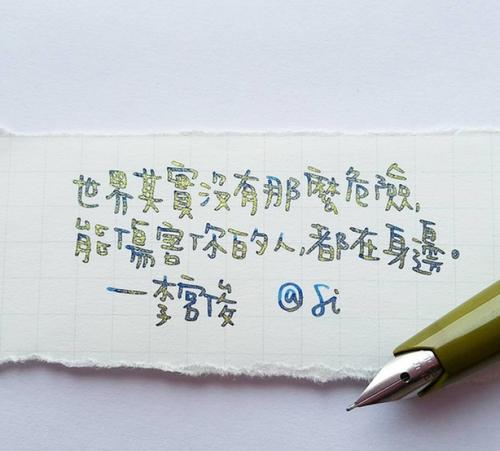 世界其實沒有那麼危險,
能傷害你的人,都在身邊。
—李宮俊 @Si